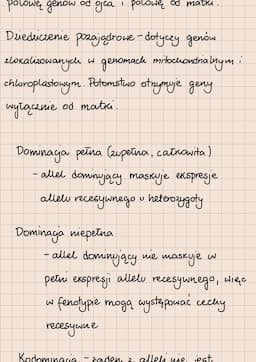 połowę genów od ojca i połowę od matki.
Dziedziczenie pozajądrowe - dotyczy genów
zlokalizowanych w genomach mitochondrialnym i
chloroplastowym. Potomstwo otrzymuje geny
wyłącznie od matki.
Dominacja pełna (zupełna, całkowita)
- allel dominujący maskuje ekspresję
allelu recesywnego u heterozygoty
Dominacja niepełna
- allel dominujący nie maskuje w
pełni ekspresji allelu recesywnego, więc
w fenotypie mogą występować cechy
recesywne
Kodominacja - żaden z alleli nie jest